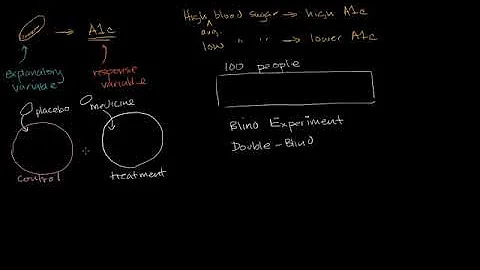 A1c
explanatory
variable
response
variable
High blood sugar → high A1c
avg.
low " " → lower A1c
100 people
placebo
medicine
control
treatment
Blind Experiment
Double-Blind